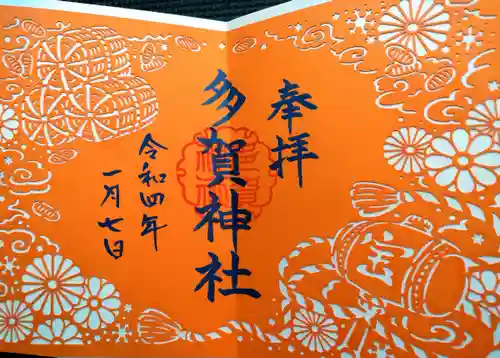 奉拝
多賀神社
令和四年
一月七日
宝